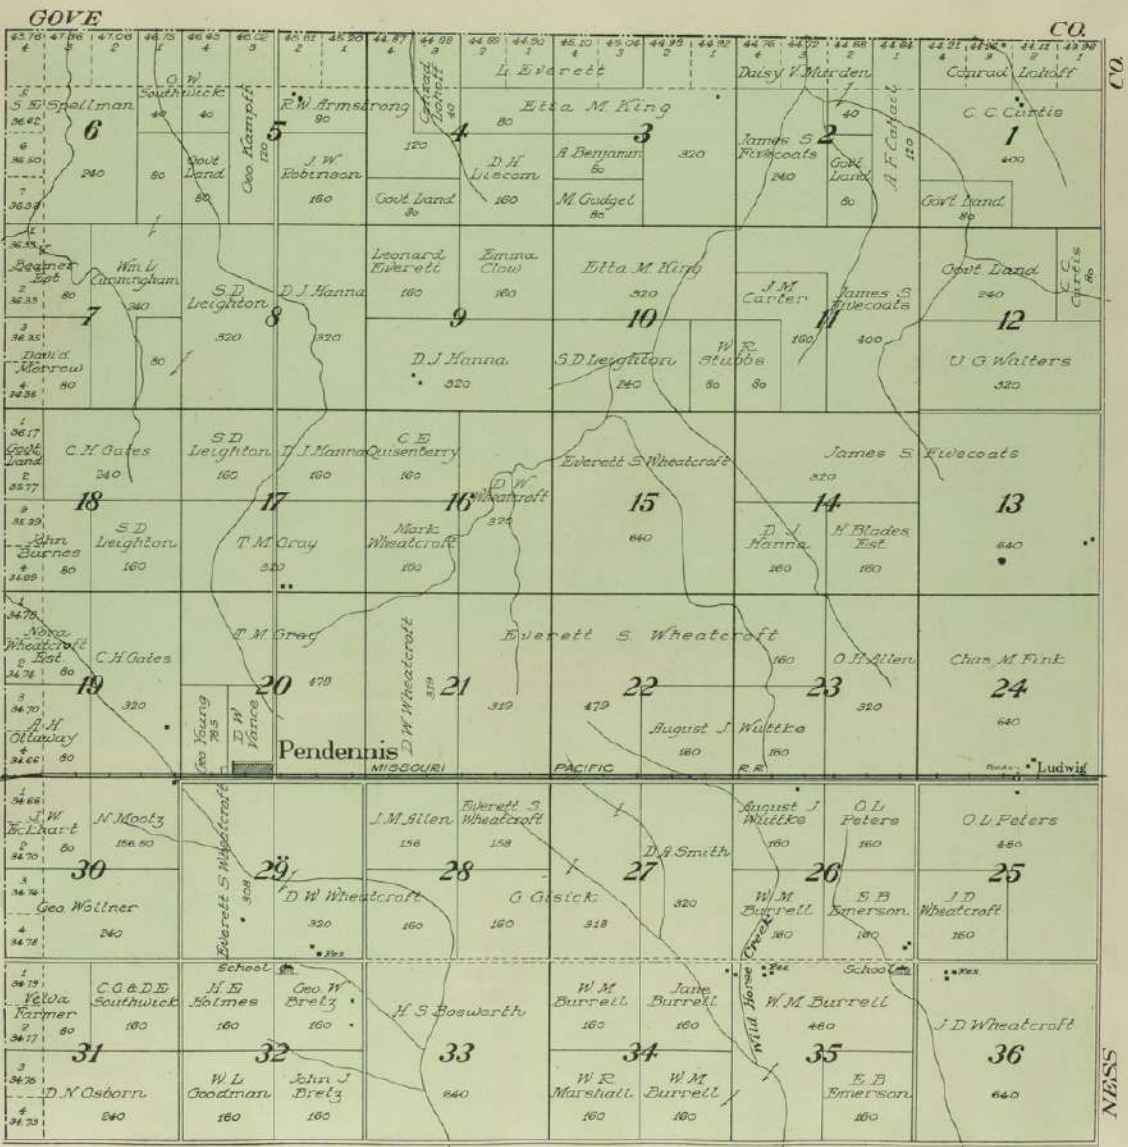 GOVE
CO.
CO.
NESS
43.76 47.36 47.06 46.75 46.45 46.02 45.61 45.20 44.87 44.88 44.89 44.90 45.10 45.04 44.98 44.92 44.76 44.72 44.68 44.64 44.21
4 3 2 1 4 3 2 1 4 3 2 1 4 3 2 1 4 3 2 1 4 3 2 1
S E Spellman
6
240
5
36.62
6
36.50
7
36.38
G. W.
Southwick
40
40
80
Govt
Land
80
Geo Kampff
120
5
R W Armstrong
80
J. W.
Robinson
160
Conrad
Lohoff
40
120
Govt Land
80
4
L Everett
Etta M King
80
D H
Liscom
160
3
A Benjamin
80
M Gudgel
80
320
Daisy V Murden
James S
Fivecoats
240
2
40
Govt
Land
80
A F Cahail
120
Conrad Lohoff
C. C. Curtis
1
400
Govt Land
80
Beamer
Est
80
7
David
Morrow
80
Wm L
Cunningham
240
80
S D
Leighton
320
8
D J Hanna
320
Leonard
Everett
160
Emma
Clow
160
9
D. J. Hanna
320
Etta M King
320
10
S. D. Leighton
240
W R
Stubbs
80 80
J. M.
Carter
160
11
James S
Fivecoats
400
Govt Land
240
C. C.
Curtis
80
12
U G Walters
320
1
36.17
Govt
Land
2
35.77
C. H. Gates
240
18
John
Burnes
80
S D
Leighton
160
S D
Leighton
160
D J Hanna
160
17
T. M. Gray
320
C E
Quisenberry
160
16
D W
Wheatcroft
320
Mark
Wheatcroft
160
Everett S. Wheatcroft
15
640
James S Fivecoats
320
14
D. J.
Hanna
160
H Blades
Est
160
13
640
Nora
Wheatcroft
Est. 80
19
A H
Ottaway
80
C H Gates
320
T M Gray
20
479
Geo Young
78.5
D W
Vance
Pendennis
D W Wheatcroft
319
21
319
Everett S. Wheatcroft
22
479
160
August J Wuttke
160
160
23
O H Allen
320
Chas M Fink
24
640
MISSOURI PACIFIC R.R.
Ludwig
1
34.66
J. W.
Eckhart
2
34.70
80
N Mootz
156.50
30
Geo Wollner
240
Everett S Wheatcroft
308
29
D. W. Wheatcroft
320
160
Res
J. M. Allen
156
Everett S
Wheatcroft
158
28
G Gisick
160
318
27
D. A. Smith
320
August J
Wuttke
160
O L
Peters
160
26
W. M.
Burrell
160
E B
Emerson
160
O L Peters
480
25
J. D.
Wheatcroft
160
Velva
Farmer
80
31
D N Osborn
240
C G & D E
Southwick
160
School
H. E
Holmes
160
Geo. W
Bretz
160
32
W. L
Goodman
160
John J.
Bretz
160
H. S Bosworth
33
640
W. M
Burrell
160
Jane
Burrell
160
34
W. R
Marshall
160
W. M
Burrell
160
Wild Horse Creek
Res
School
W. M Burrell
480
35
E B
Emerson
160
Res
J D Wheatcroft
36
640